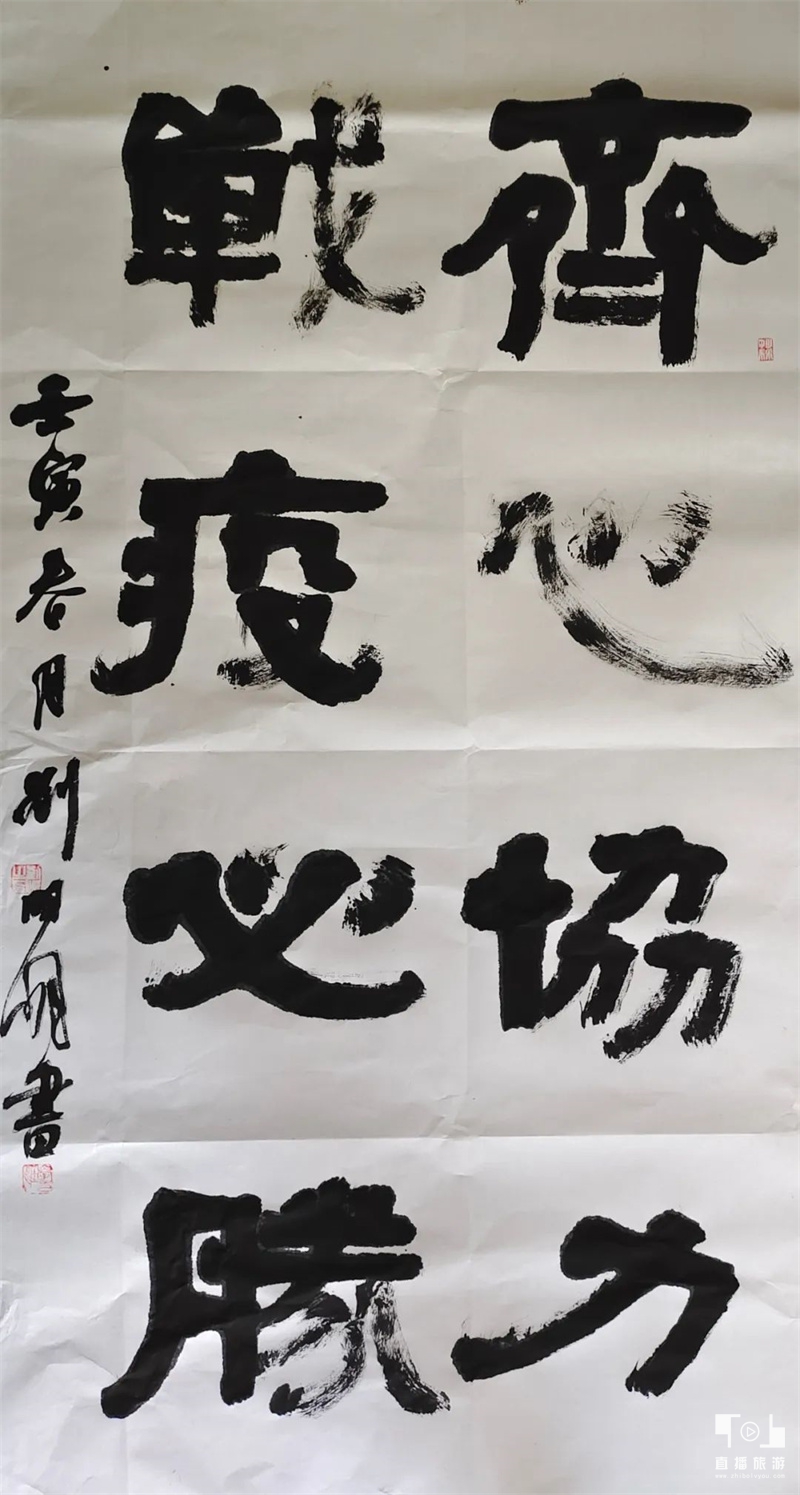 齊心協力
戰疫必勝
壬寅春月劉明書
直播旅游